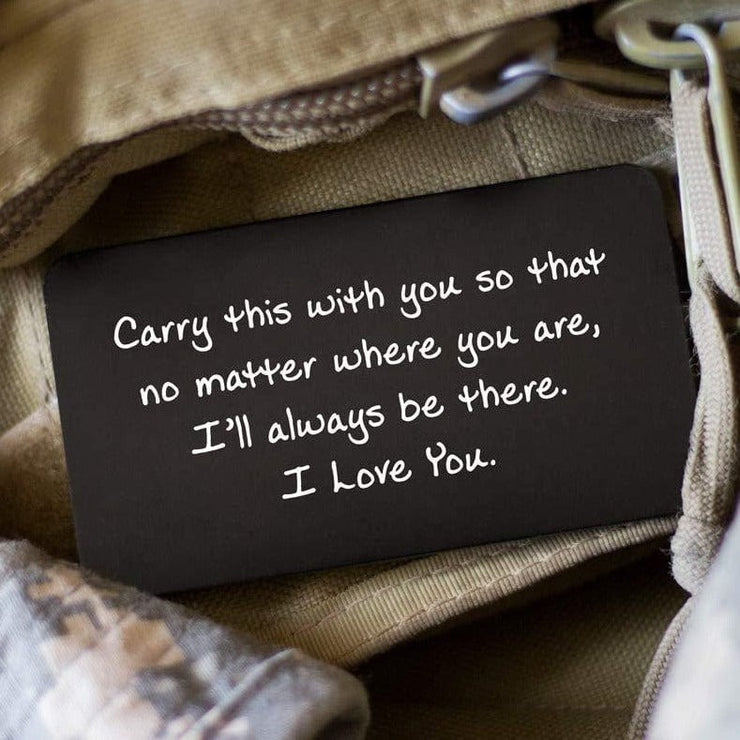 Carry this with you so that
no matter where you are,
I'll always be there.
I Love You.